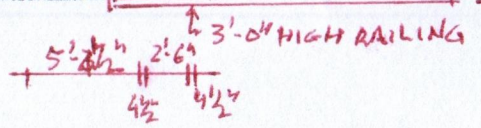 3'-0" HIGH RAILING
2'-6"
4½"
4½"